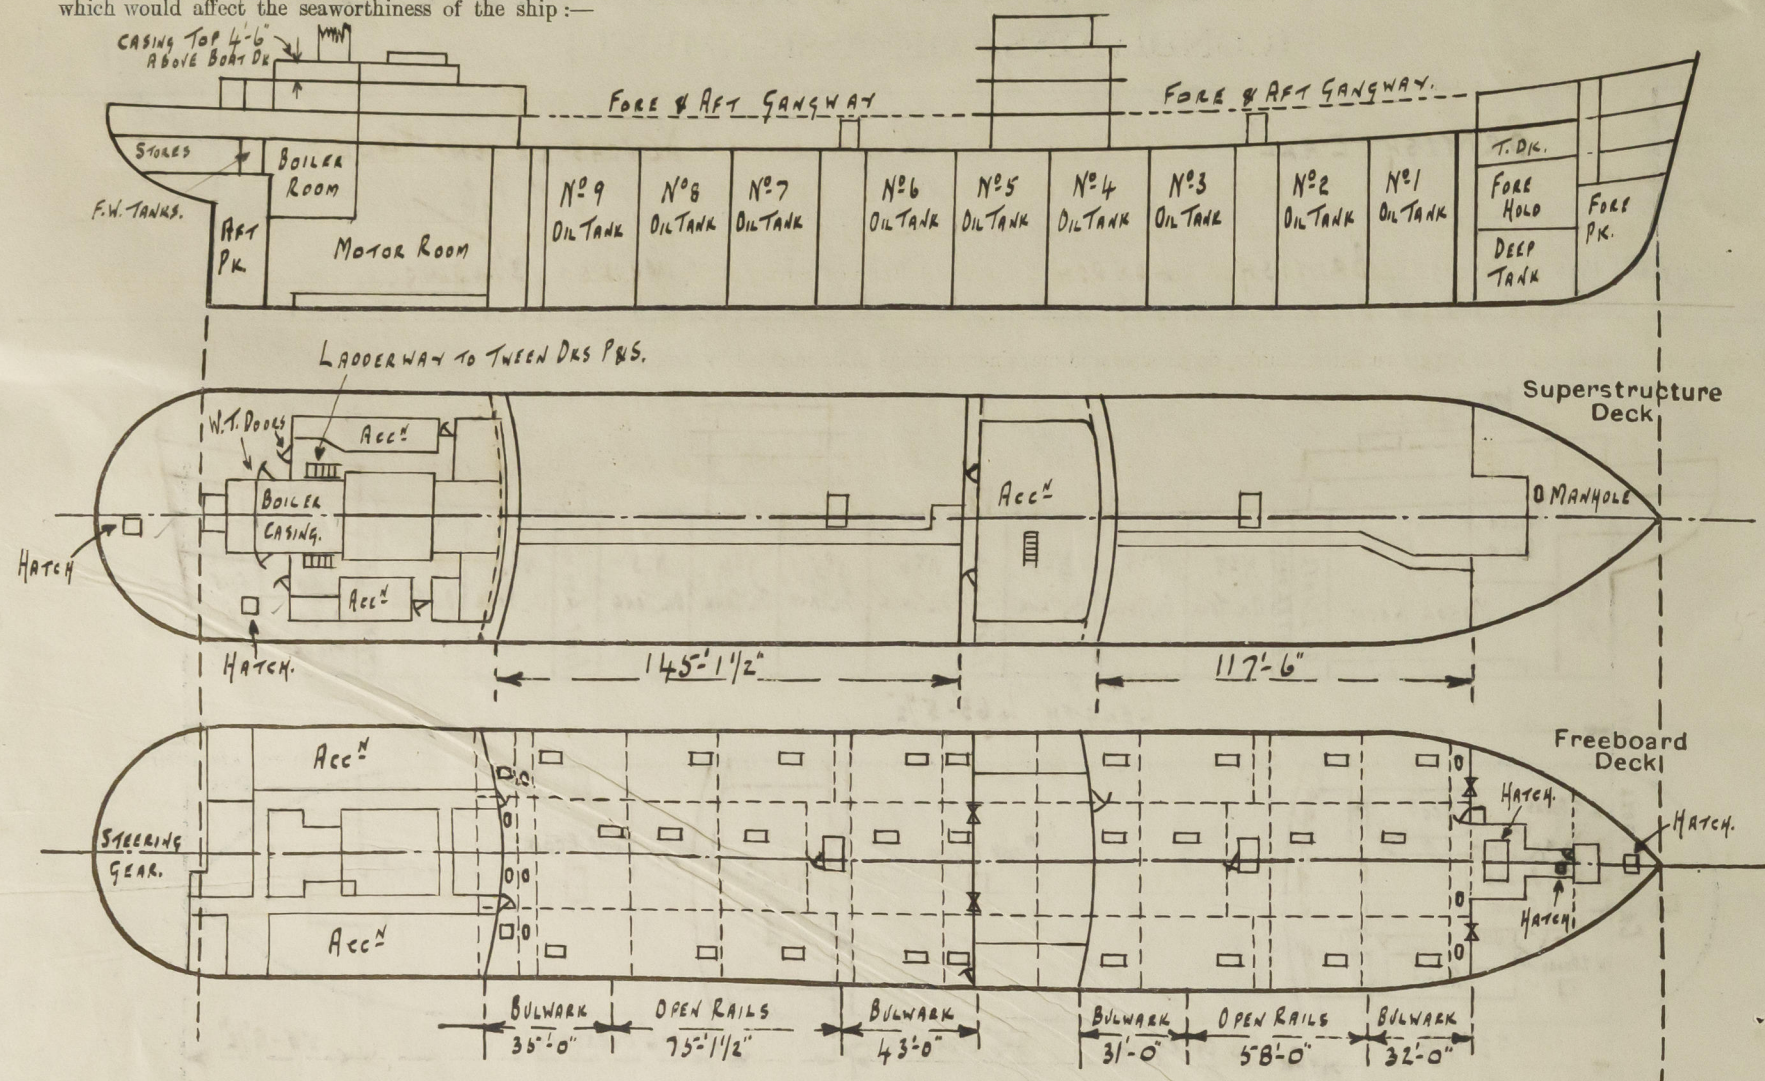 which would affect the seaworthiness of the ship :—
CASING TOP 4'-6"
ABOVE BOAT DK
FORE & AFT GANGWAY
FORE & AFT GANGWAY.
STORES
BOILER
ROOM
F.W. TANKS.
AFT
PK.
MOTOR ROOM
Nº 9
OIL TANK
Nº 8
OIL TANK
Nº 7
OIL TANK
Nº 6
OIL TANK
Nº 5
OIL TANK
Nº 4
OIL TANK
Nº 3
OIL TANK
Nº 2
OIL TANK
Nº 1
OIL TANK
T. DK.
FORE
HOLD
DEEP
TANK
FORE
PK.
LADDERWAY TO TWEEN DKS P&S.
Superstructure
Deck
W.T. DOORS
ACCᴺ
BOILER
CASING.
ACCᴺ
ACCᴺ
MANHOLE
HATCH
HATCH.
145'-1½"
117'-6"
Freeboard
Deck
ACCᴺ
STEERING
GEAR.
ACCᴺ
HATCH.
HATCH.
HATCH.
BULWARK
35'-0"
OPEN RAILS
75'-1½"
BULWARK
43'-0"
BULWARK
31'-0"
OPEN RAILS
58'-0"
BULWARK
32'-0"